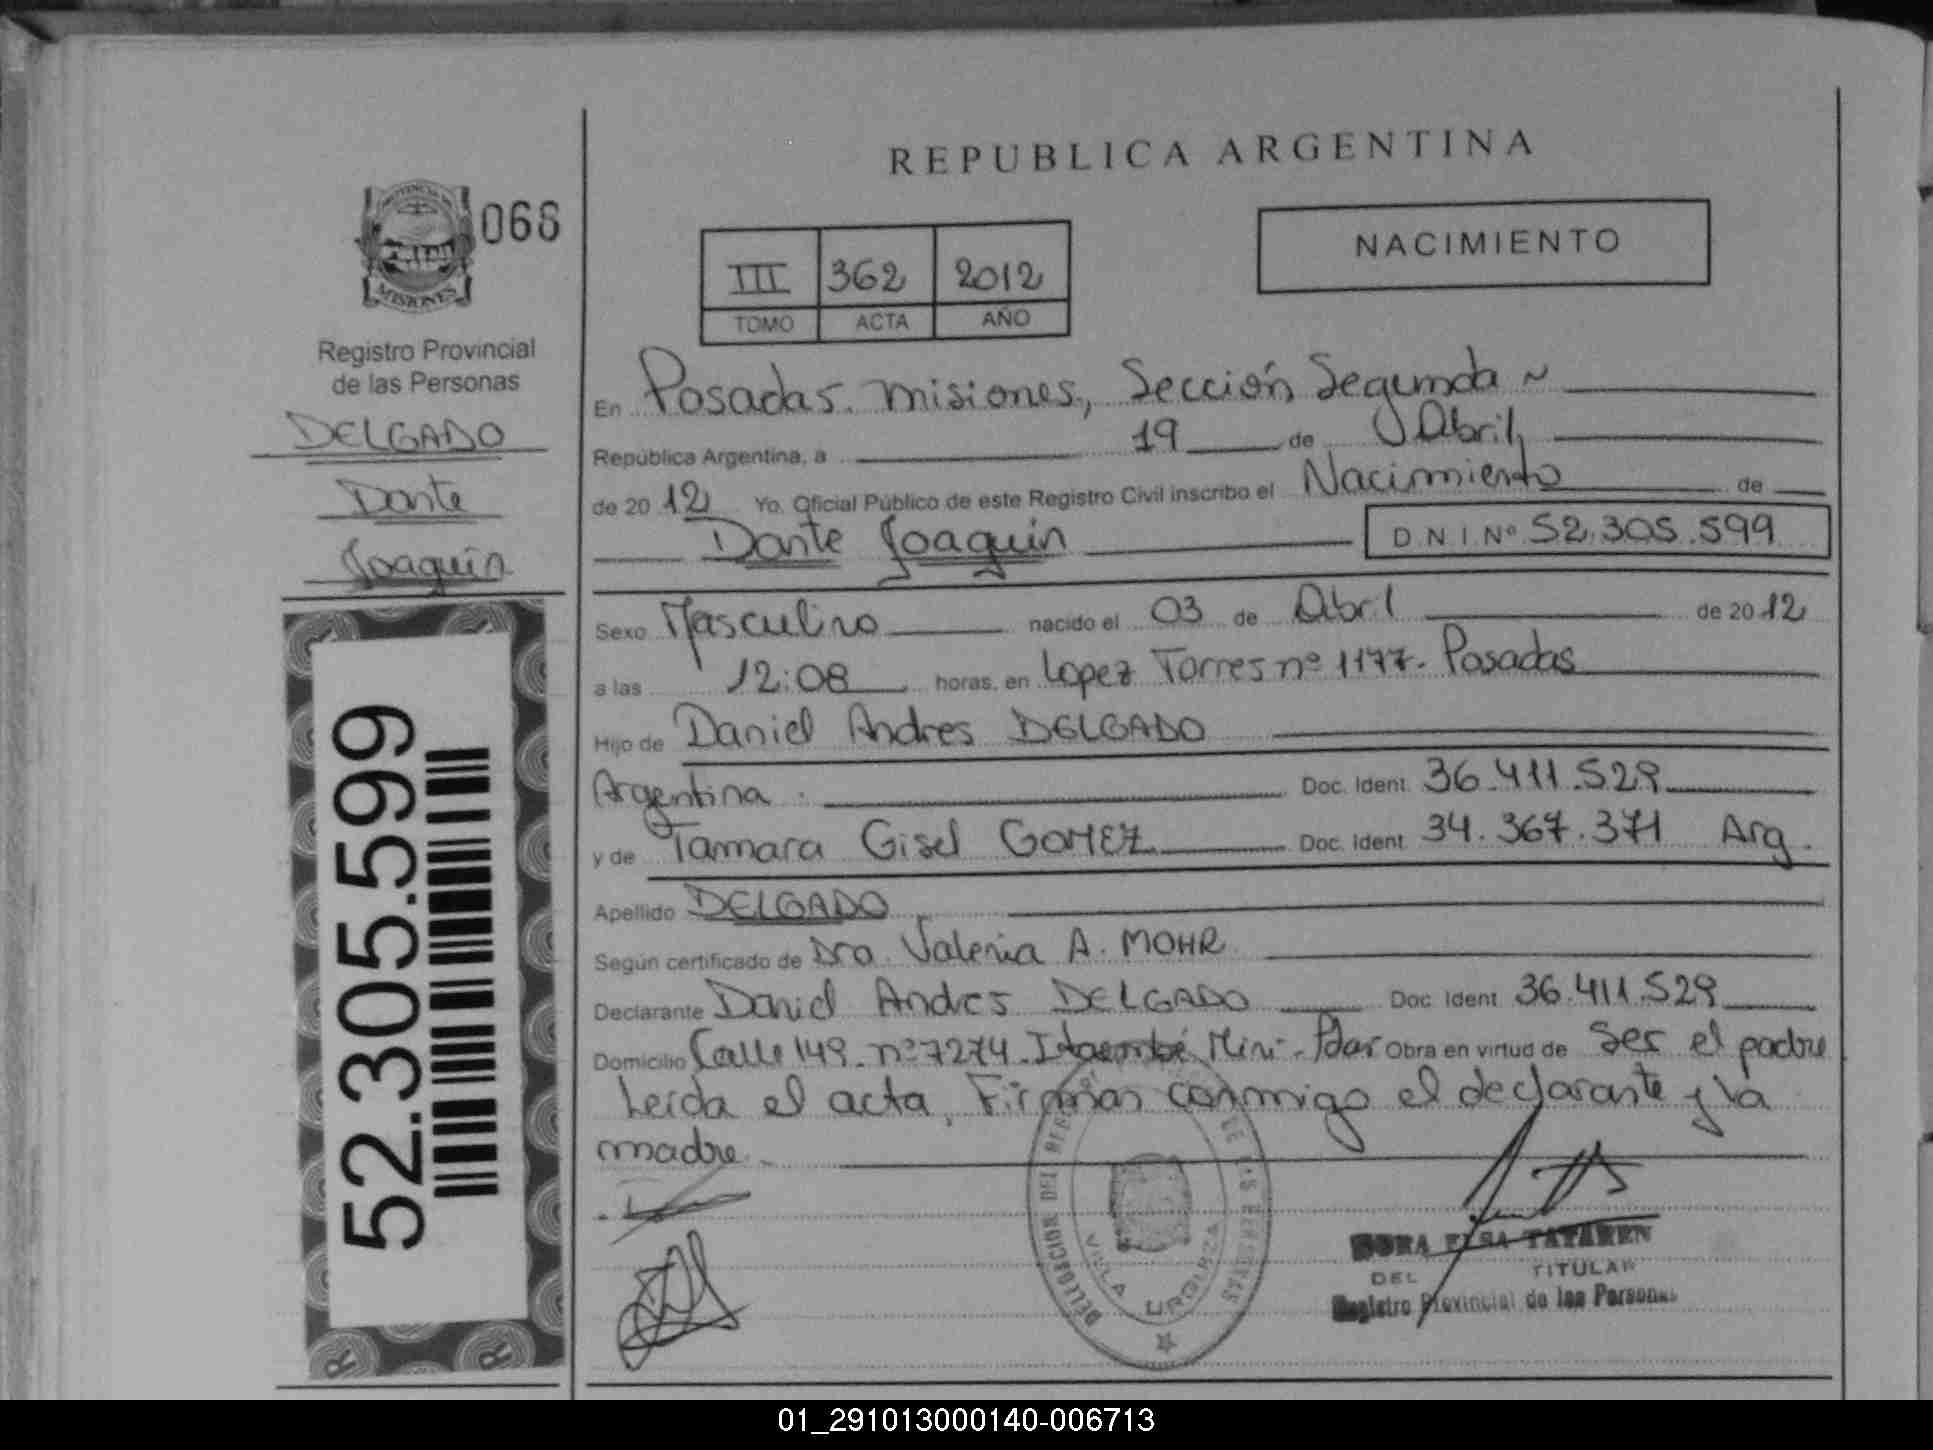 REPUBLICA ARGENTINA
PROVINCIA DE
MISIONES
068
Registro Provincial
de las Personas
DELGADO
Dante
Joaquín
52.305.599
III 362 2012
TOMO ACTA AÑO
NACIMIENTO
En Posadas. Misiones, Sección Segunda
República Argentina, a 19 de Abril,
de 2012 Yo, Oficial Público de este Registro Civil inscribo el Nacimiento de
Dante Joaquín D N I Nº 52.305.599
Sexo Masculino nacido el 03 de Abril de 2012
a las 12:08 horas, en Lopez Torres nº 1177. Posadas
Hijo de Daniel Andres DELGADO
Argentina. Doc. Ident. 36.411.529
y de Tamara Gisel GOMEZ Doc. Ident. 34.367.371 Arg.
Apellido DELGADO
Según certificado de Dra. Valeria A. MOHR
Declarante Daniel Andres DELGADO Doc. Ident. 36.411.529
Domicilio Calle 149. nº 7274. Itaembé Mini. Pdas Obra en virtud de ser el padre
Leída el acta, Firman conmigo el declarante y la
madre.
DELEGACION DEL REG. DE LAS PERSONAS
VILLA URQUIZA
ELSA TATAREN
DEL TITULAR
Registro Provincial de las Personas
01_291013000140-006713